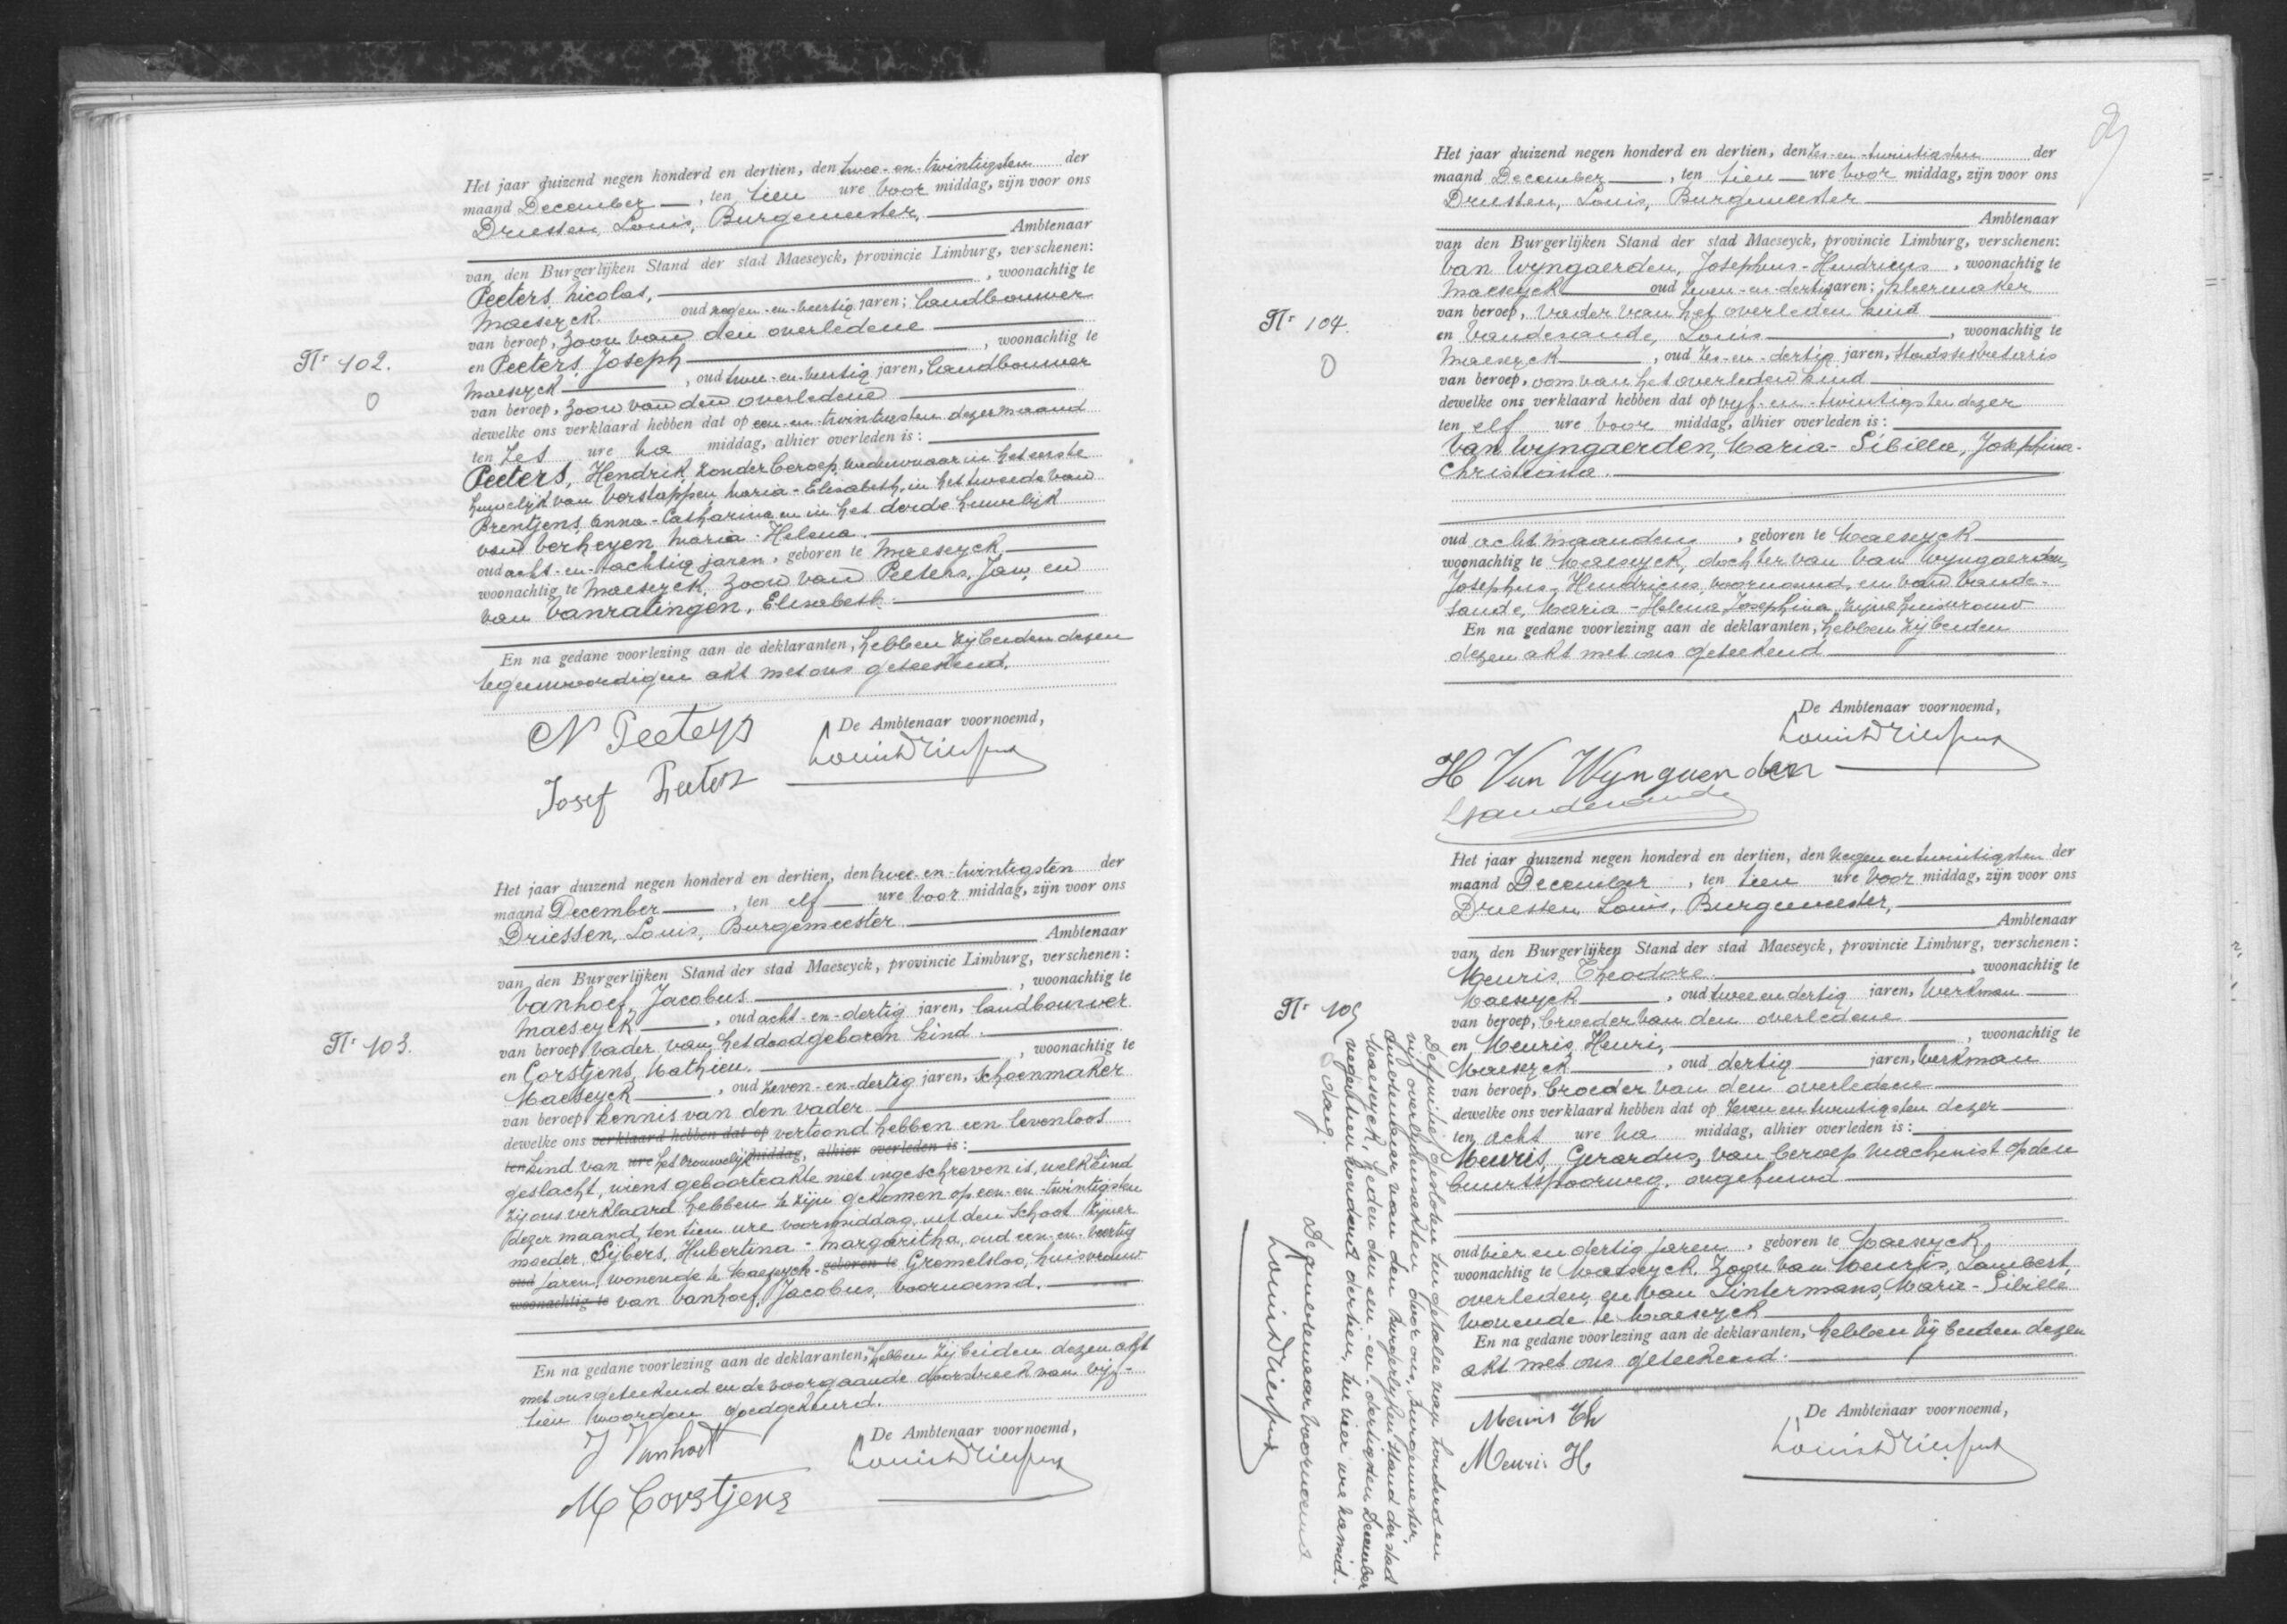 Nr 102.
0
Het jaar duizend negen honderd en dertien, den twee-en-twintigsten der
maand December, ten tien ure voor middag, zijn voor ons
Driessen, Louis, Burgemeester,
Ambtenaar
van den Burgerlijken Stand der stad Maeseyck, provincie Limburg, verschenen:
Peeters, Nicolas, , woonachtig te
Maeseyck oud negen-en-veertig jaren; landbouwer
van beroep, zoon van den overledene
en Peeters, Joseph , woonachtig te
Maeseyck , oud twee-en-veertig jaren, landbouwer
van beroep, zoon van den overledene
dewelke ons verklaard hebben dat op een-en-twintigsten dezer maand
ten zes ure na middag, alhier overleden is:
Peeters, Hendrik, zonder beroep, weduwnaar in het eerste
huwelijk van Verstappen Maria-Elisabeth, in het tweede van
Prentjens, Anna-Catharina en in het derde huwelijk
van Verheyen Maria-Helena.
oud acht-en-tachtig jaren, geboren te Maeseyck,
woonachtig te Maeseyck, zoon van Peeters, Jan, en
van Vanratingen, Elisabeth.
En na gedane voorlezing aan de deklaranten, hebben zij beiden dezen
tegenwoordigen akt met ons geteekend.
De Ambtenaar voornoemd,
N Peeters
Louis Driessen
Josef Peeters
Nr 103.
Het jaar duizend negen honderd en dertien, den twee-en-twintigsten der
maand December, ten elf ure voor middag, zijn voor ons
Driessen, Louis, Burgemeester
Ambtenaar
van den Burgerlijken Stand der stad Maeseyck, provincie Limburg, verschenen:
Vanhoef, Jacobus , woonachtig te
Maeseyck , oud acht-en-dertig jaren, landbouwer
van beroep, vader van het doodgeboren kind.
en Corstjens, Mathieu. , woonachtig te
Maeseyck , oud zeven-en-dertig jaren, schoenmaker
van beroep, kennis van den vader
dewelke ons verklaard hebben dat op vertoond hebben een levenloos
ten kind van ure het vrouwelijk middag, alhier overleden is:
geslacht, wiens geboorteakte niet ingeschreven is, welk kind
zij ons verklaard hebben te zijn gekomen op een-en-twintigsten
dezer maand, ten tien ure voormiddag, uit den schoot zijner
moeder, Sijbers, Hubertina-Margaritha, oud een-en-veertig
oud jaren, wonende te Maeseyck, geboren te Gremelsloo, huisvrouw
woonachtig te van Vanhoef, Jacobus, voornoemd.
En na gedane voorlezing aan de deklaranten, hebben zij beiden dezen akt
met ons geteekend en de voorgaande doorstreek van vijf-
tien woorden goedgekeurd.
De Ambtenaar voornoemd,
J Vanhoef
Louis Driessen
M Corstjens
Nr 104.
0
Het jaar duizend negen honderd en dertien, den zes-en-twintigsten der
maand December, ten tien ure voor middag, zijn voor ons
Driessen, Louis, Burgemeester
Ambtenaar
van den Burgerlijken Stand der stad Maeseyck, provincie Limburg, verschenen:
Van Wyngaerden, Josephus-Hendricus , woonachtig te
Maeseyck oud zeven-en-dertig jaren; kleermaker
van beroep, vader van het overleden kind
en Vandesande, Louis , woonachtig te
Maeseyck , oud zes-en-dertig jaren, stadssekretaris
van beroep, oom van het overleden kind
dewelke ons verklaard hebben dat op vyf-en-twintigsten dezer
ten elf ure voor middag, alhier overleden is:
Van Wyngaerden, Maria-Sibilla, Josephina-
Christiana.
oud acht maanden , geboren te Maeseyck
woonachtig te Maeseyck, dochter van Van Wyngaerden,
Josephus-Hendricus, voornoemd, en van Vande-
sande, Maria-Helena Josephina, zijne huisvrouw
En na gedane voorlezing aan de deklaranten, hebben zij beiden
dezen akt met ons geteekend
De Ambtenaar voornoemd,
Louis Driessen
H Van Wyngaerden
LVandesande
Nr 105
0
Het jaar duizend negen honderd en dertien, den negen en twintigsten der
maand December , ten tien ure voor middag, zijn voor ons
Driessen, Louis, Burgemeester,
Ambtenaar
van den Burgerlijken Stand der stad Maeseyck, provincie Limburg, verschenen:
Meuris, Theodore. , woonachtig te
Maeseyck , oud twee en dertig jaren, Werkman
van beroep, broeder van den overledene
en Meuris, Henri, , woonachtig te
Maeseyck , oud dertig jaren, werkman
van beroep, broeder van den overledene
dewelke ons verklaard hebben dat op zeven en twintigsten dezer
ten acht ure na middag, alhier overleden is:
Meuris, Gerardus, van beroep machinist op den
buurtspoorweg, ongehuwd
oud vier en dertig jaren , geboren te Maeseyck,
woonachtig te Maeseyck, zoon van Meuris, Lambert,
overleden, en van Lintermans, Maria-Sibille
wonende te Maeseyck
En na gedane voorlezing aan de deklaranten, hebben zij beiden dezen
akt met ons geteekend.
De Ambtenaar voornoemd,
Meuris Th
Meuris H.
Louis Driessen
Definitief gesloten ten getalle van honderd en
vijf overlijdensakten door ons, Burgemeester,
Ambtenaar van den burgerlijken stand der stad
Maeseyck, heden den een-en-dertigsten December
negentien honderd dertien, ten vier ure namid-
dag.
De Ambtenaar voornoemd
Louis Driessen